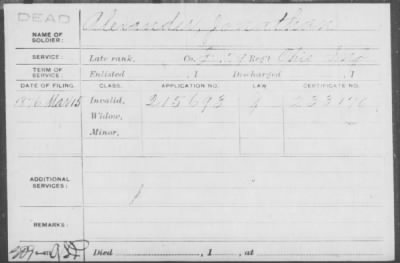 DEAD
Alexander, Jonathan
NAME OF SOLDIER:
SERVICE: Late rank, Co. Reg't Ohio Inf
TERM OF SERVICE: Enlisted , 1 Discharged , 1
DATE OF FILING. CLASS. APPLICATION NO. LAW CERTIFICATE NO.
1876 Mar 15 Invalid, 215693
Widow,
Minor,
ADDITIONAL SERVICES:
REMARKS:
Died , 1 , at